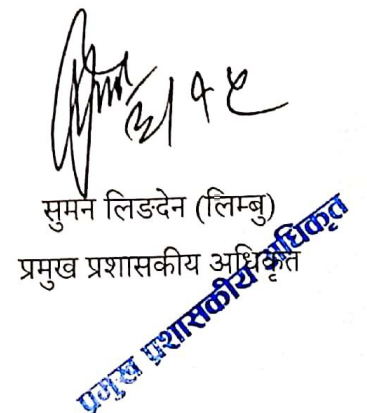 ३।१५
सुमन लिङदेन (लिम्बु)
प्रमुख प्रशासकीय अधिकृत
प्रमुख प्रशासकीय अधिकृत